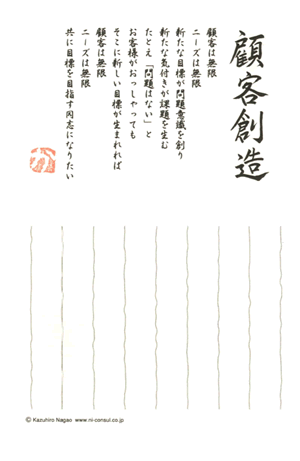 顧客創造
顧客は無限
ニーズは無限
新たな目標が問題意識を創り
新たな気付きが課題を生む
たとえ「問題はない」と
お客様がおっしゃっても
そこに新しい目標が生まれれば
顧客は無限
ニーズは無限
共に目標を目指す同志になりたい
© Kazuhiro Nagao www.ni-consul.co.jp